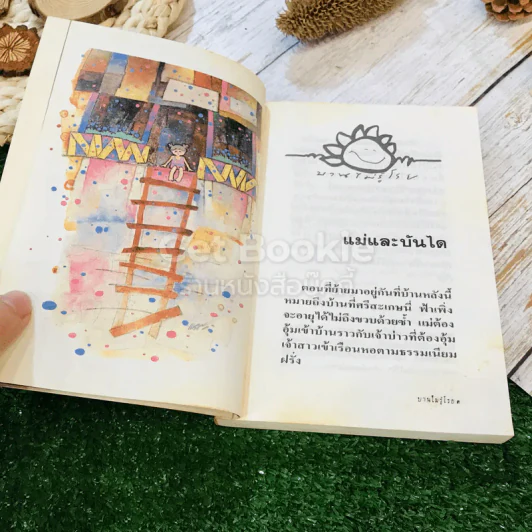 บานไม่รู้โรย
แม่และบันได
Get Bookie
ร้านหนังสือพี่กี้
ตอนที่ย้ายมาอยู่กันที่บ้านหลังนี้
หมายถึงบ้านที่ศรีสะเกษนี่ ฟ้าเพิ่ง
จะอายุได้ไม่ถึงขวบด้วยซ้ำ แม่ต้อง
อุ้มเข้าบ้านราวกับเจ้าบ่าวที่ต้องอุ้ม
เจ้าสาวเข้าเรือนหอตามธรรมเนียม
ฝรั่ง
บานไม่รู้โรย